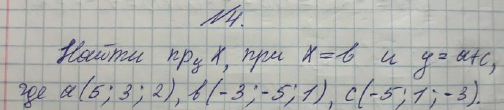 №4.
Найти пр_y x, при x=b и y=a+c,
где a(5; 3; 2), b(-3; -5; 1), c(-5; 1; -3).